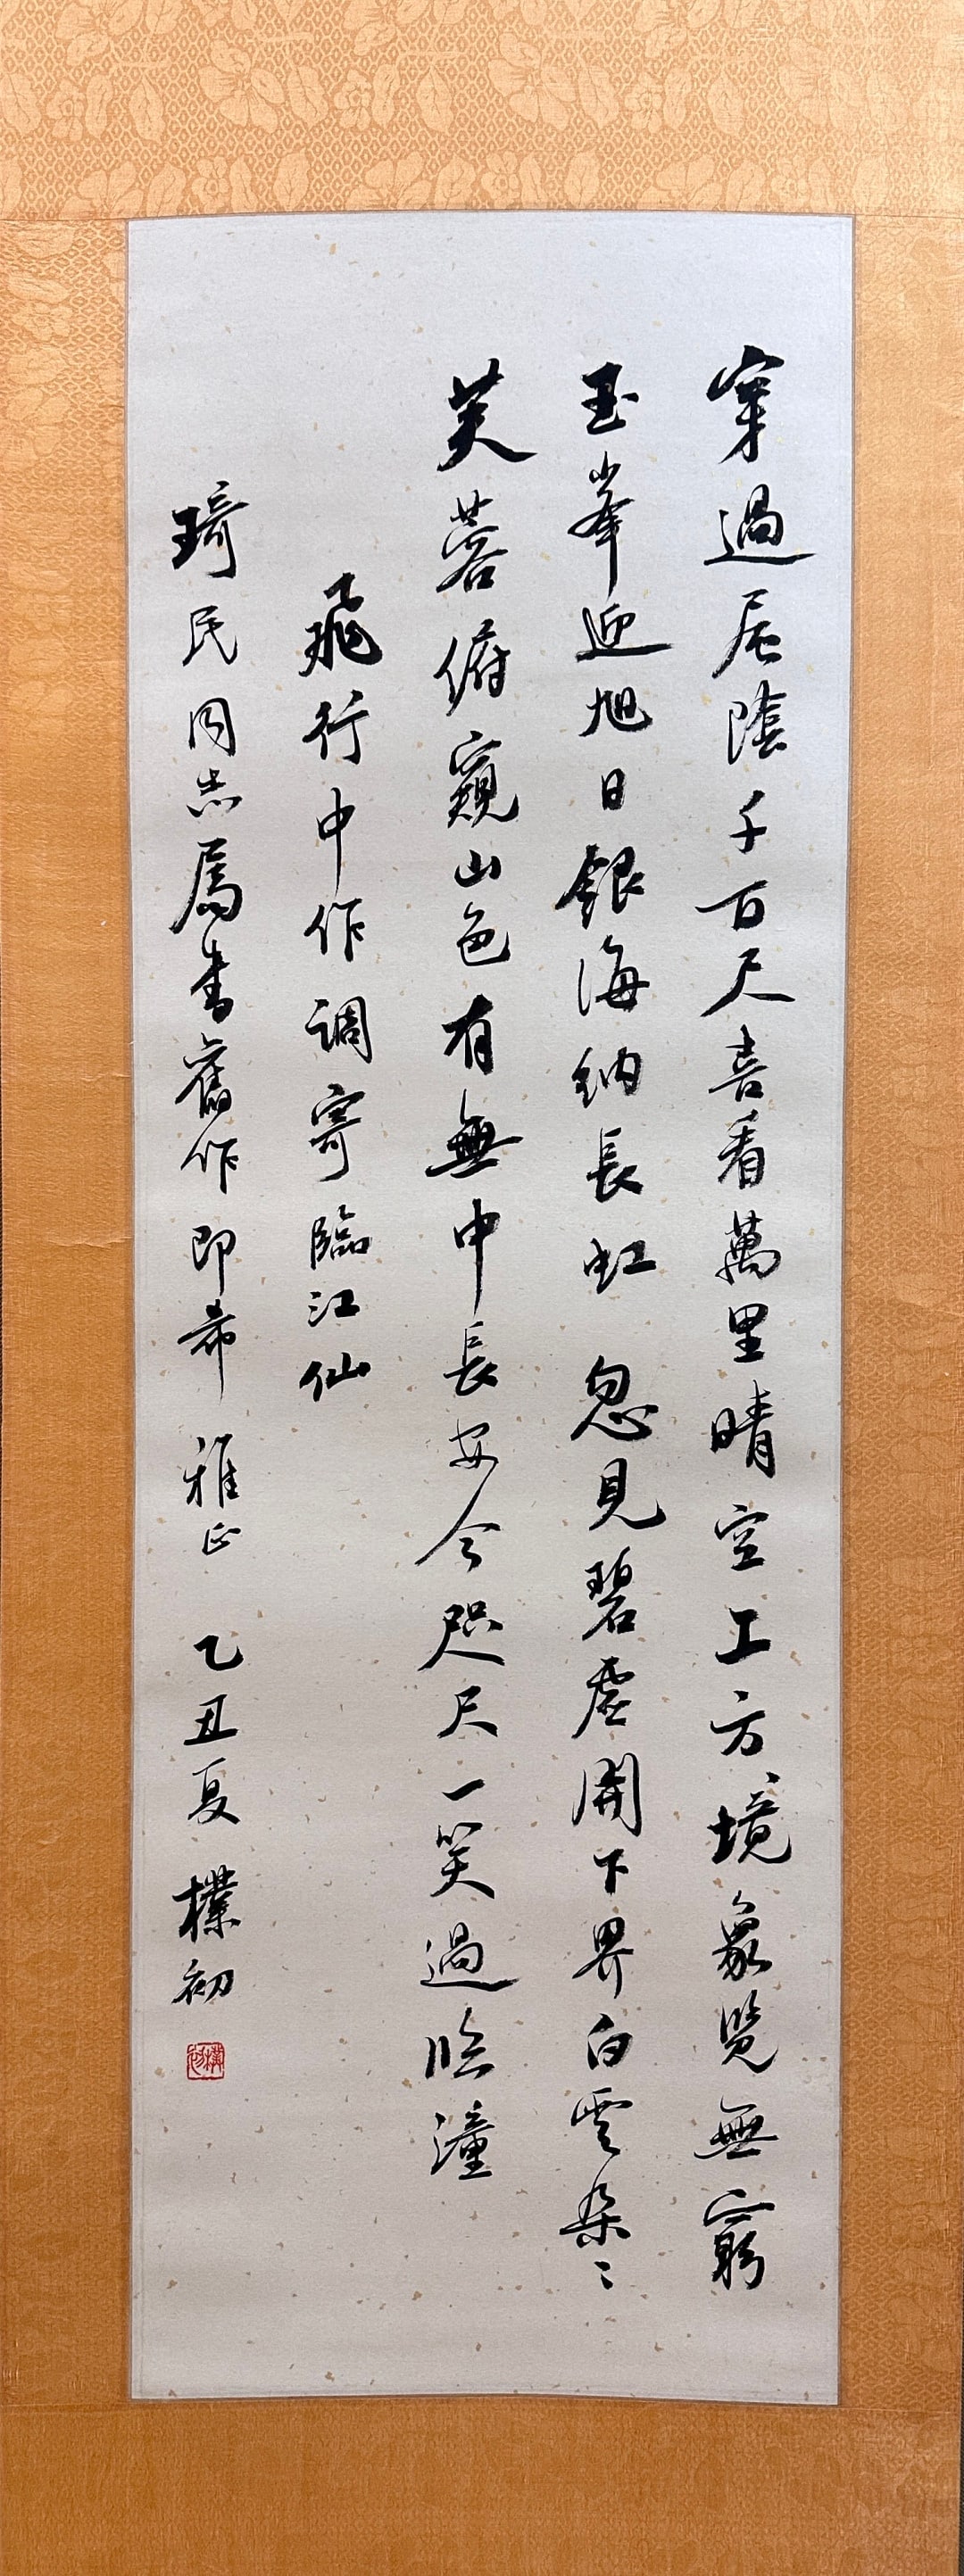 穿過層陰千百尺喜看萬里晴空上方境象覽無窮
玉峯迎旭日銀海納長虹 忽見碧虛開下界白雲朵〻
芙蓉俯窺山色有無中長安今咫尺一笑過臨潼
飛行中作調寄臨江仙
琦民同志屬書舊作即希 雅正 乙丑夏 樸初
樸初